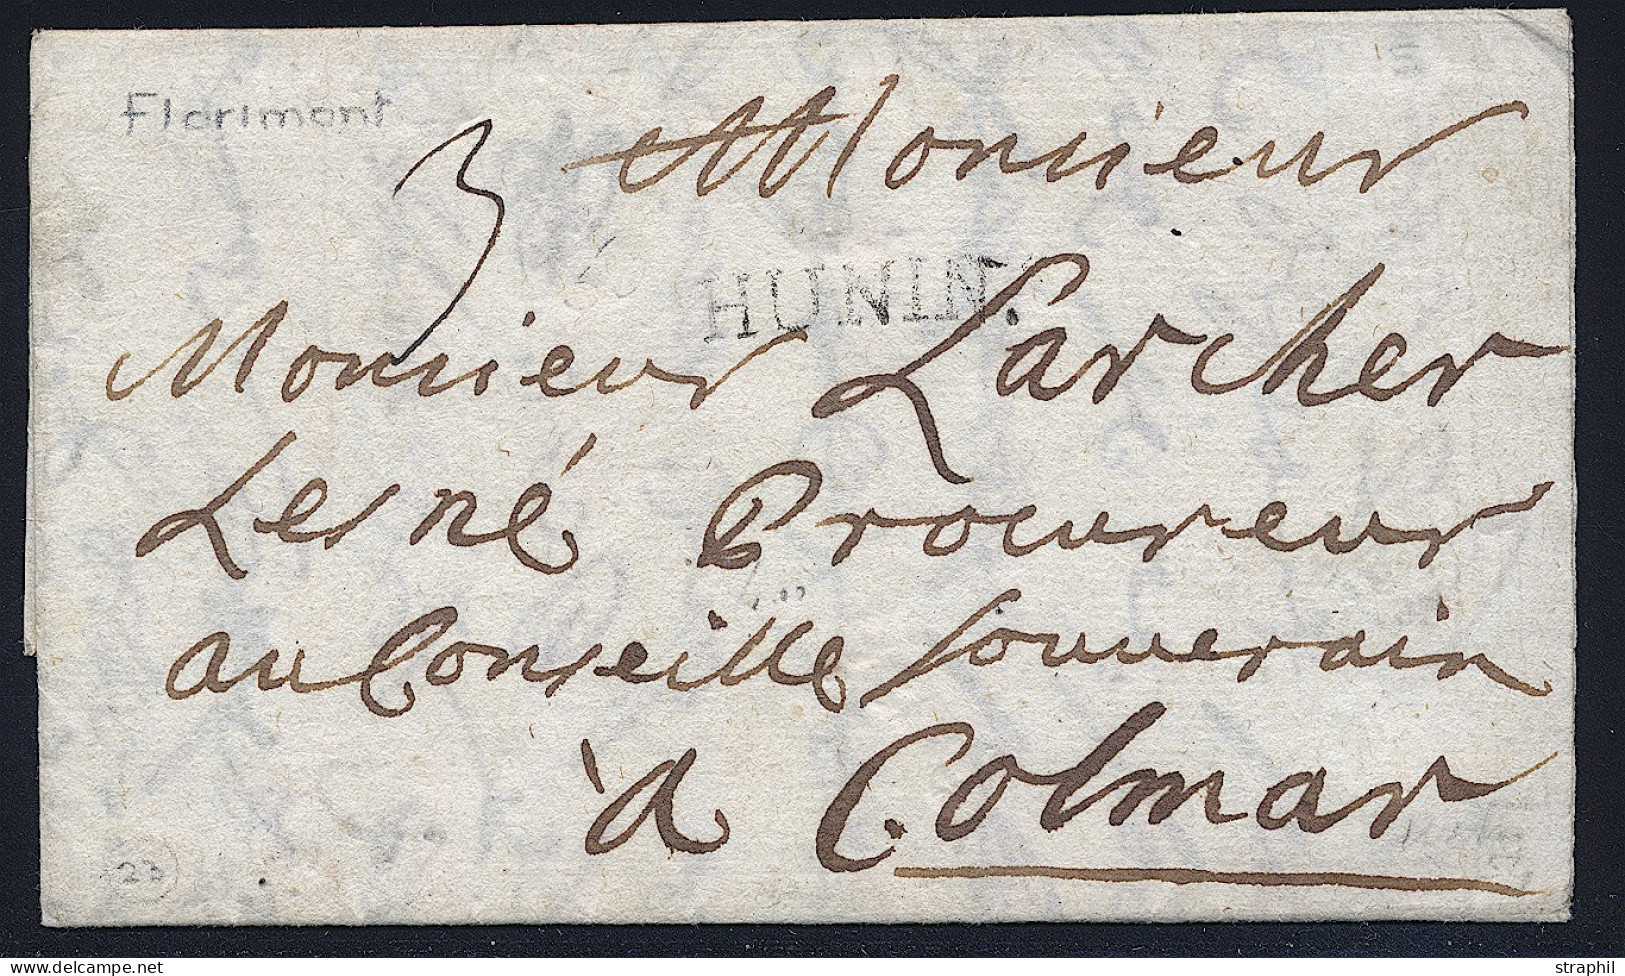 Florimont
3 Monsieur
HUNIN.
Monsieur Larcher
Lesné Procureur
au Conseille souverain
à Colmar
23
delcampe.net
straphil